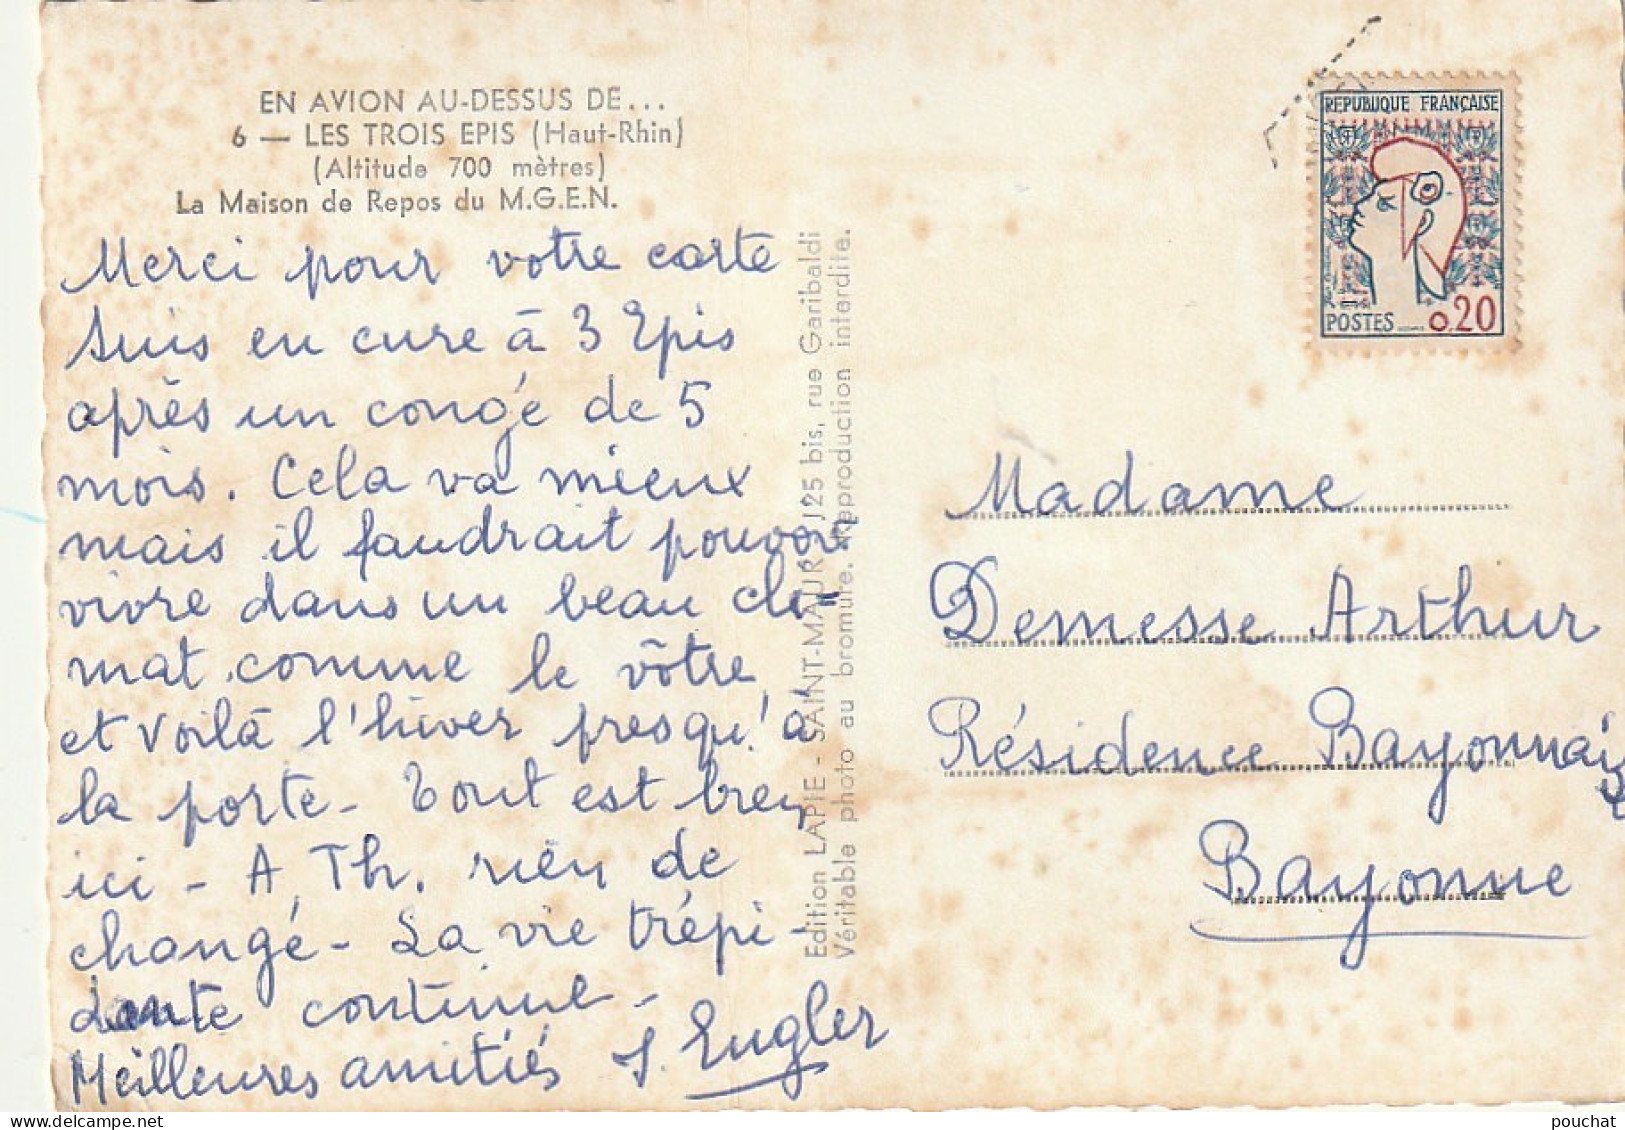 EN AVION AU-DESSUS DE...
6 — LES TROIS EPIS (Haut-Rhin)
(Altitude 700 mètres)
La Maison de Repos du M.G.E.N.
Merci pour votre carte
Suis en cure à 3 Epis
après un congé de 5
mois. Cela va mieux
mais il faudrait pouvoir
vivre dans un beau cli-
mat comme le vôtre
et voilà l'hiver presqu'à
la porte - Tout est bien
ici - A Th. rien de
changé - La vie trépi-
dante continue -
Meilleures amitiés J. Engler
Edition LAPIE - SAINT-MAUR, 125 bis, rue Garibaldi
Véritable photo au bromure. Reproduction interdite.
REPUBLIQUE FRANÇAISE
POSTES 0.20
Madame
Demesse Arthur
Résidence Bayonnais
Bayonne
pouchat